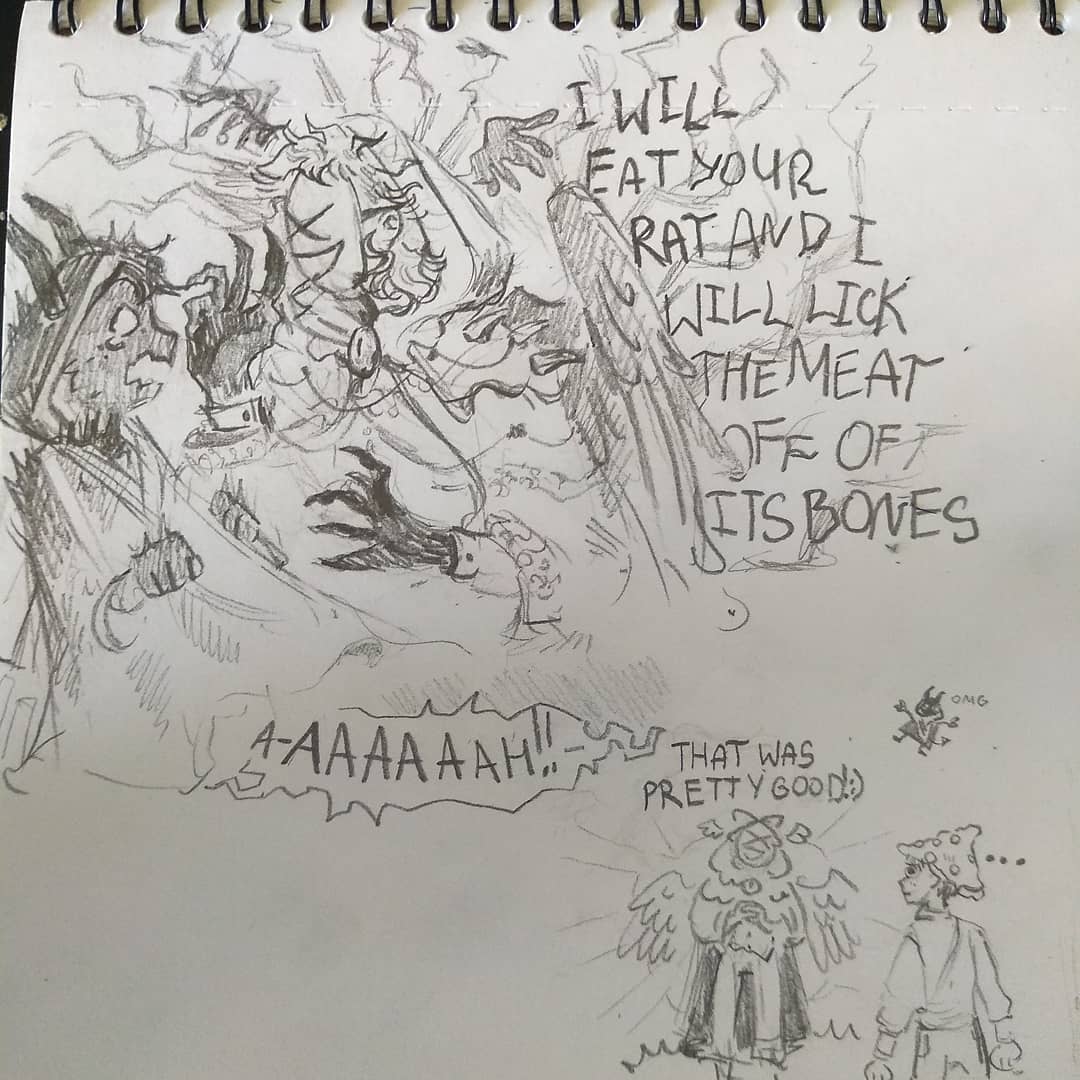 I WILL
EAT YOUR
RAT AND I
WILL LICK
THE MEAT
OFF OFF
ITS BONES
A-AAAAAAAH!!-
OMG
THAT WAS
PRETTY GOOD! :)
...